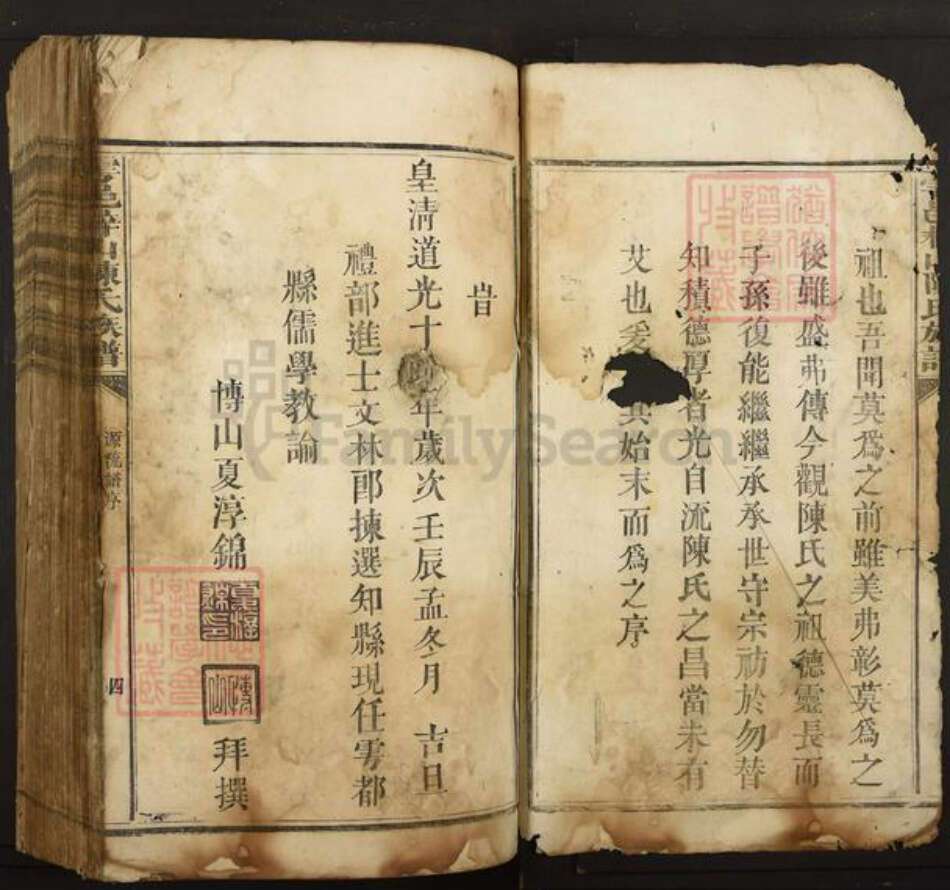 祖也吾聞莫爲之前雖美弗彰莫爲之
後雖盛弗傳今觀陳氏之祖德靈長而
子孫復能繼繼承承世守宗祊於勿替
知積德厚者光自流陳氏之昌當未有
艾也爰 其始末而爲之序
旹
皇清道光十 年歲次壬辰孟冬月 吉旦
禮部進士文林郎揀選知縣現任雩都
縣儒學教諭
博山夏淳錦 拜撰
陳氏族譜
源流譜序
四
FamilySearch